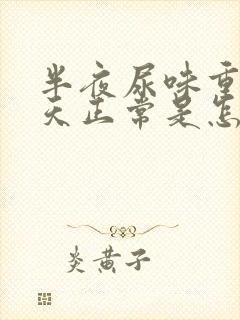 半夜尿味重
天正常是怎
炎黄子